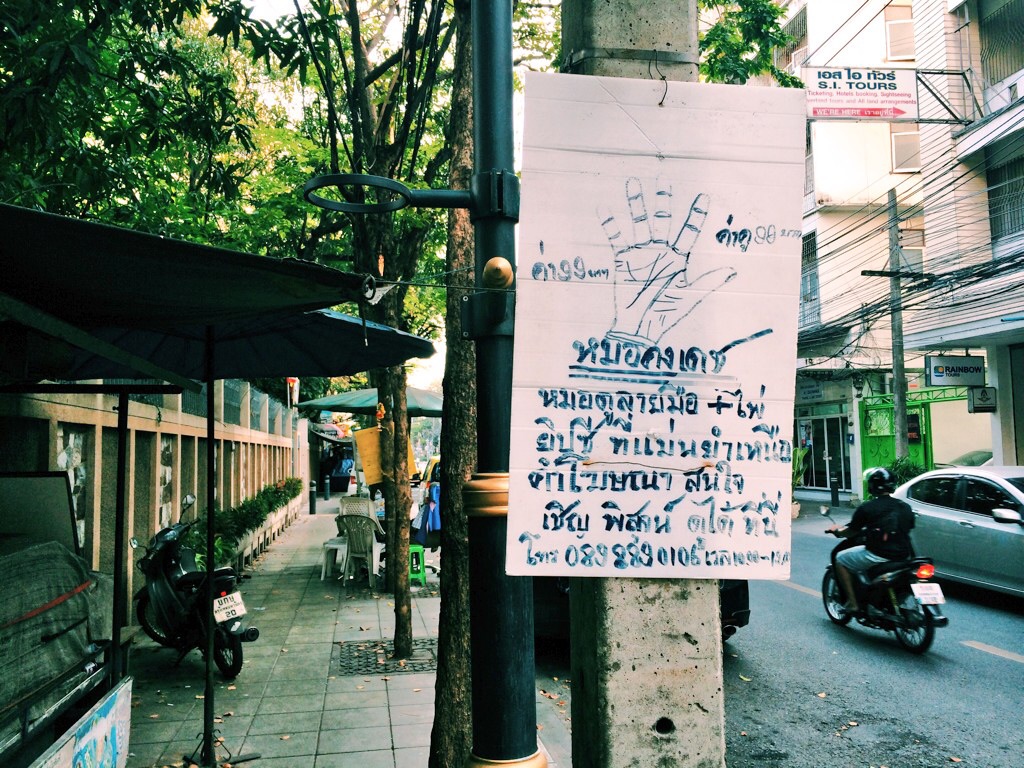 เอส ไอ ทัวร์
S.I. TOURS
Ticketing, Hotels booking, Sightseeing
WE'RE HERE เราอยู่ที่นี่
ค่าดู ๑๑
ค่า ๑๑ บาท
หมอคงเดช
หมอดูลายมือ + ไพ่
ยิปซี ที่แม่นยำเหนือ
คำโฆษณา สนใจ
เชิญ พิสูจน์ ดูได้ ที่นี่
โทร 089 889 0106
RAINBOW
TOURS
20